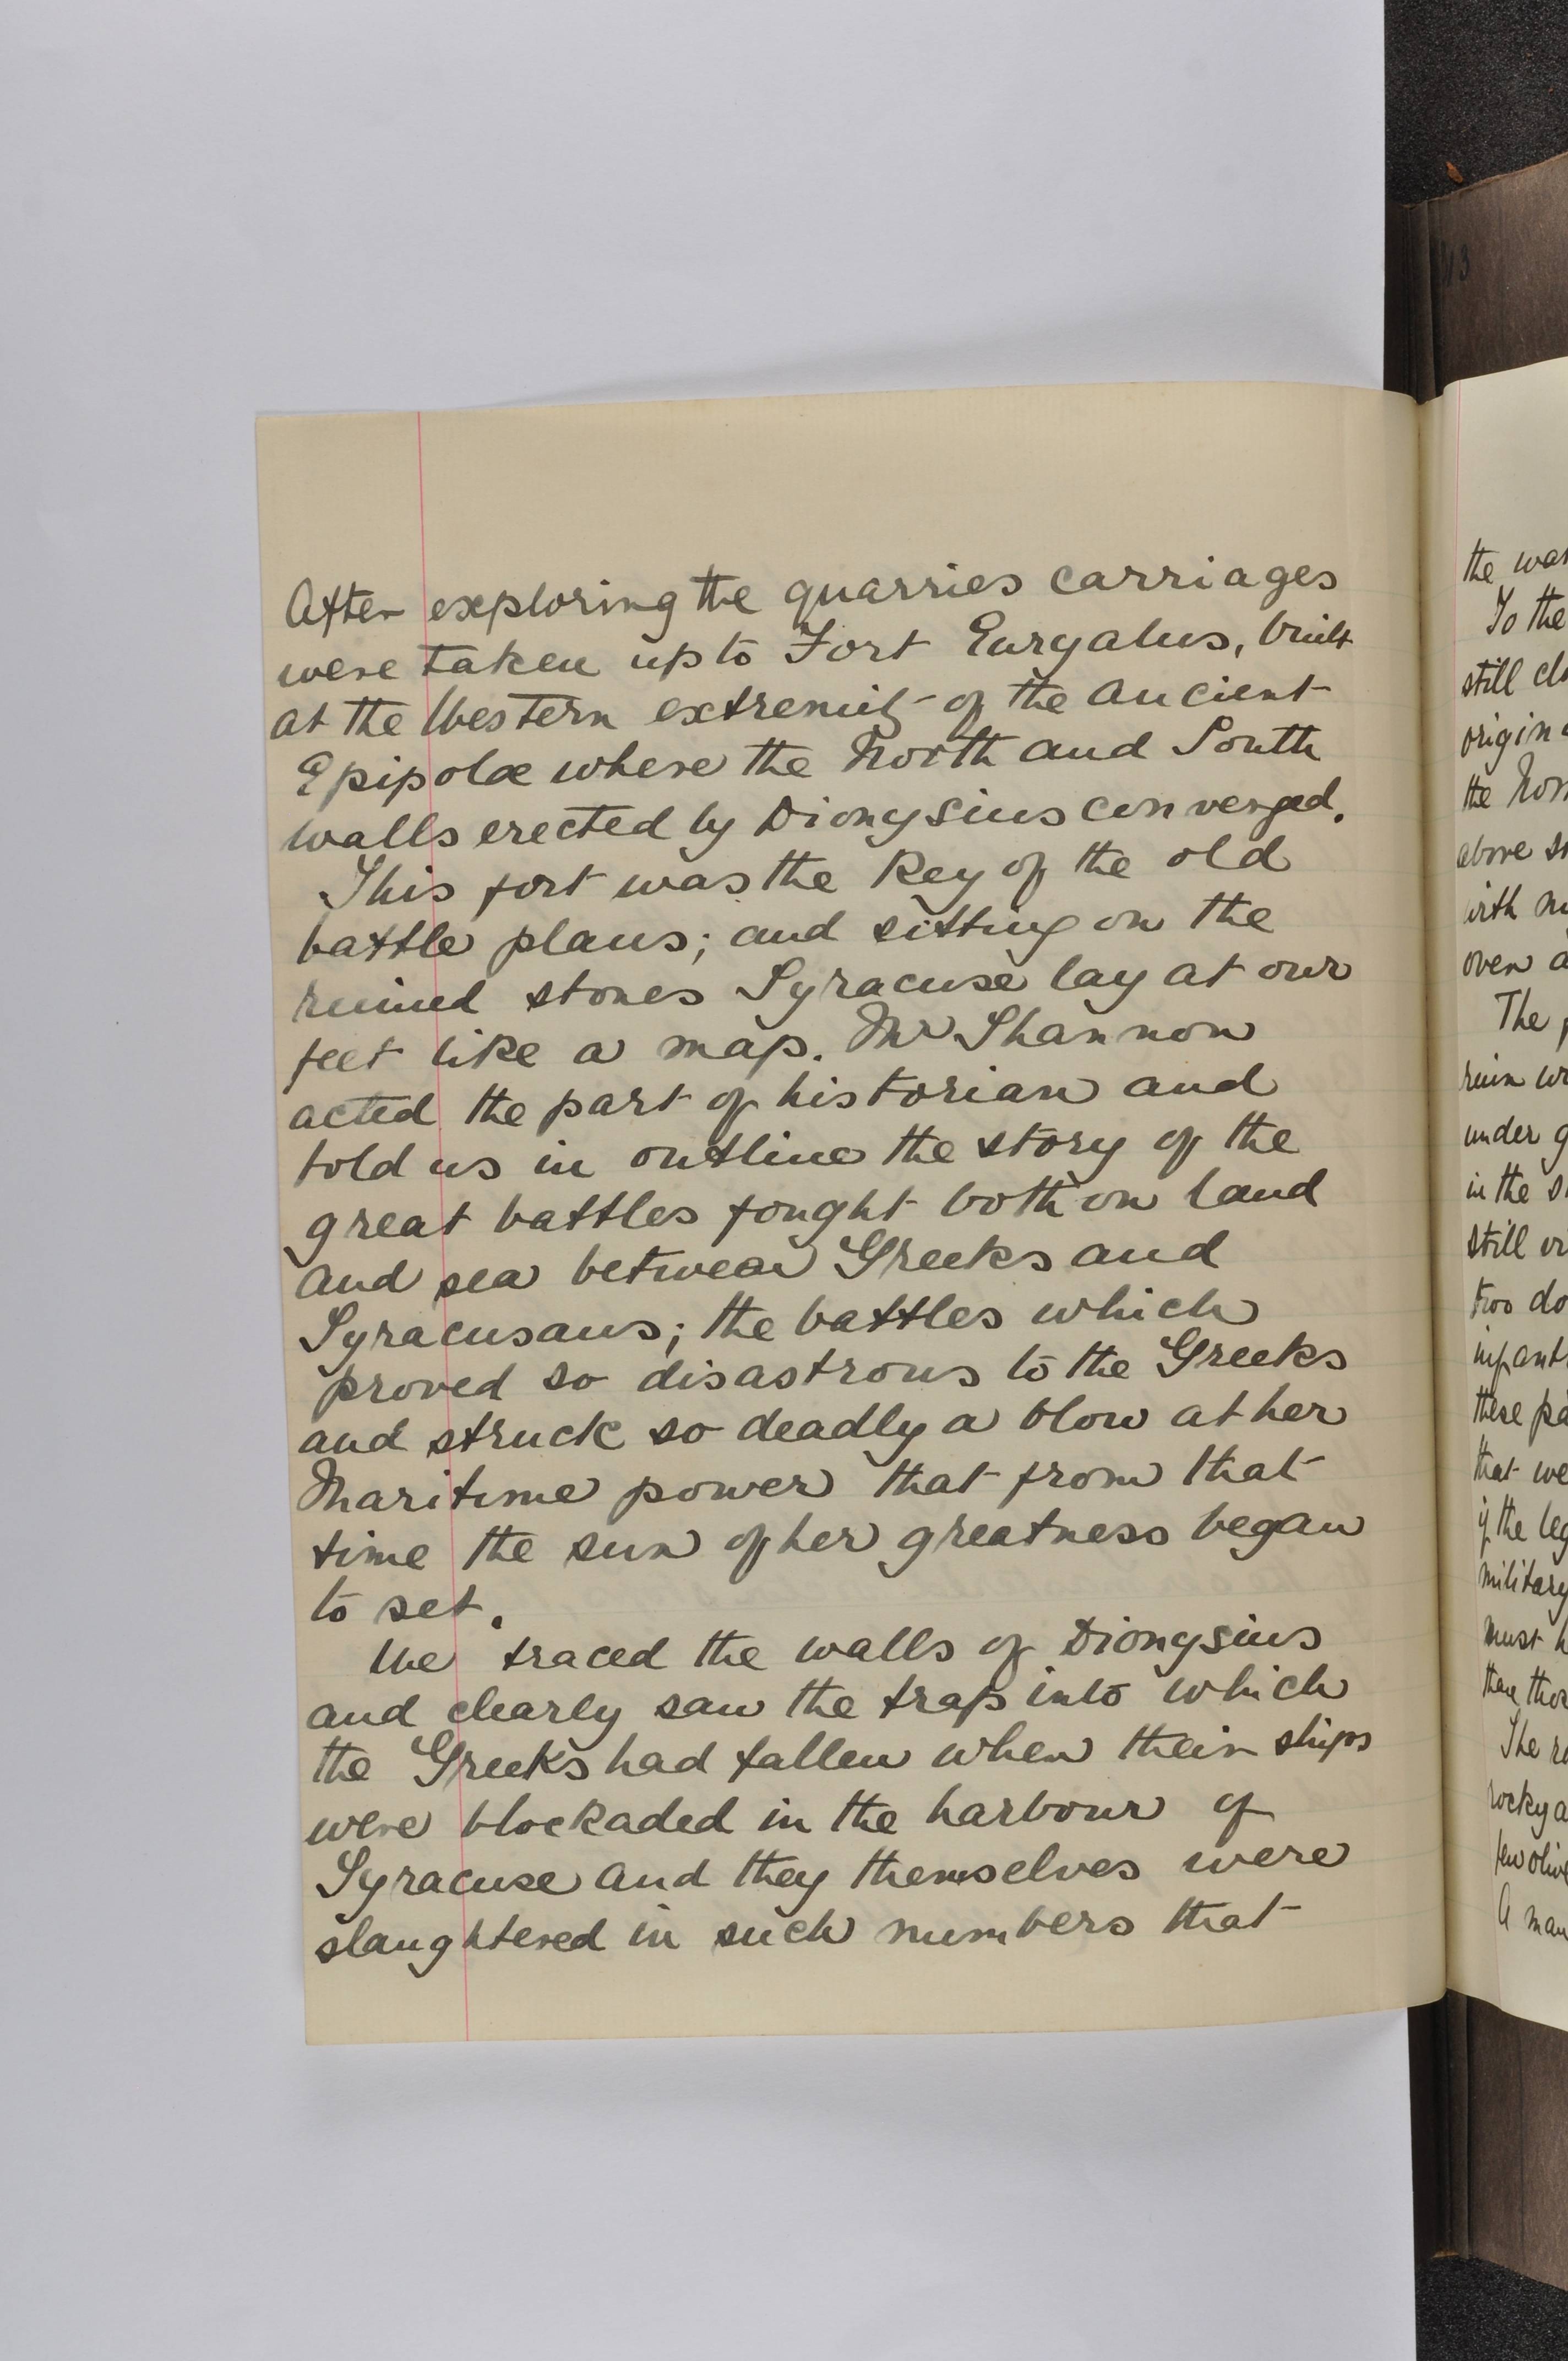 After exploring the quarries carriages
were taken up to Fort Euryalus, built
at the Western extremity of the ancient
Epipolæ where the North and South
walls erected by Dionysius converged.
This fort was the key of the old
battle plans; and sitting on the
ruined stones Syracuse lay at our
feet like a map. Mr Shannon
acted the part of historian and
told us in outline the story of the
great battles fought both on land
and sea between Greeks and
Syracusans; the battles which
proved so disastrous to the Greeks
and struck so deadly a blow at her
Maritime power that from that
time the sun of her greatness began
to set.
We traced the walls of Dionysius
and clearly saw the trap into which
the Greeks had fallen when their ships
were blockaded in the harbour of
Syracuse and they themselves were
slaughtered in such numbers that
the
To the
still
origin
the
above
with
over
The
ruin
under
in the
still
two
these
that we
if the
military
must
than
The
rocky
few
A